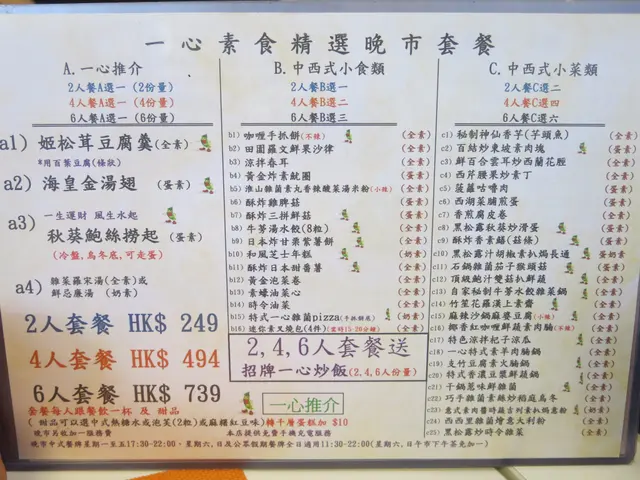 一心素食精選晚市套餐
A. 一心推介
2人餐A選一 (2份量)
4人餐A選一 (4份量)
6人餐A選一 (6份量)
a1) 姬松茸豆腐羹(全素)
*用百葉豆腐(條狀)
a2) 海皇金湯翅 (蛋素)
a3) 一生運財 風生水起
秋葵鮑絲撈起 (蛋素)
(冷盤,鳥冬底,可走蛋)
a4) 雜菜羅宋湯(全素)或
鮮忌廉湯 (奶素)
2人套餐 HK$ 249
4人套餐 HK$ 494
6人套餐 HK$ 739
B. 中西式小食類
2人餐B選一
4人餐B選二
6人餐B選三
b1) 咖喱手抓餅(不辣) (全素)
b2) 田園羅文鮮果沙律 (蛋素)
b3) 涼拌春耳 (全素)
b4) 黃金炸素魷圈 (蛋素)
b5) 淮山雜菌素丸香辣酸菜湯米粉(小辣) (全素)
b6) 酥炸雞脾菇 (蛋素)
b7) 酥炸三拼鮮菇 (蛋素)
b8) 牛蒡湯水餃(8粒) (全素)
b9) 日本炸甘栗紫薯餅 (全素)
b10) 和風芝士年糕 (奶素)
b11) 酥炸日本甜番薯 (全素)
b12) 黃金泡菜卷 (全素)
b13) 素蠔油菜心 (全素)
b14) 時令油菜 (全素)
b15) 特式一心雜菌pizza(手抓餅底) (奶素)
b16) 迷你素叉燒包(4件)(需時15-20分鐘) (全素)
2,4,6人套餐送
招牌一心炒飯(2,4,6人份量)
C. 中西式小菜類
2人餐C選二
4人餐C選四
6人餐C選六
c1) 秘制神仙香芋(芋頭魚) (全素)
c2) 百結炒東坡素肉塊 (蛋素)
c3) 鮮百合雲耳炒西蘭花脛 (全素)
c4) 西芹腰果炒素丁 (全素)
c5) 菠蘿咕嚕肉 (蛋素)
c6) 西湖菜脯煎蛋 (蛋素)
c7) 香煎腐皮卷 (全素)
c8) 黑松露秋葵炒滑蛋 (蛋素)
c9) 酥炸香素鱔(菇條) (蛋素)
c10) 黑松露汁胡椒素扒焗長通 (蛋奶素)
c11) 石鍋雜菌茄子猴頭菇 (蛋素)
c12) 頂級鮑汁雙菇扒鮮蔬 (全素)
c13) 自家秘制牛蒡水餃雜菜鍋 (全素)
c14) 竹笙花羅漢上素齋 (全素)
c15) 麻辣沙鍋麻婆豆腐(小辣) (全素)
c16) 椰香紅咖喱鮮蔬素肉腩(不辣) (蛋素)
c17) 特色涼拌杞子涼瓜 (全素)
c18) 一心特式素羊肉腩鍋 (全素)
c19) 支竹豆腐素火腩鍋 (全素)
c20) 特式香濃豆漿鮮蔬鍋 (全素)
c21) 干鍋惹味鮮雜菌 (全素)
c22) 巧手雜菌素絲炒稻庭烏冬 (全素)
c23) 意式素肉醬時蔬吉列素扒焗意粉 (奶素)
c24) 西西里雜菌燴意大利粉 (全素)
c25) 黑松露炒時令雜菜 (全素)
套餐每人跟餐飲一杯 及 甜品
一心推介
(甜品可以選中式熱糖水或泡芙(2粒)或麻糬紅豆味)轉千層蛋糕加 $10
晚市另收加一服務費 本店提供免費手機充電服務
晚市中式餐牌星期一至五17:30-22:00, 星期六,日及公眾假期餐牌全日適用11:30-22:00(星期六,日午市下午茶免加一)